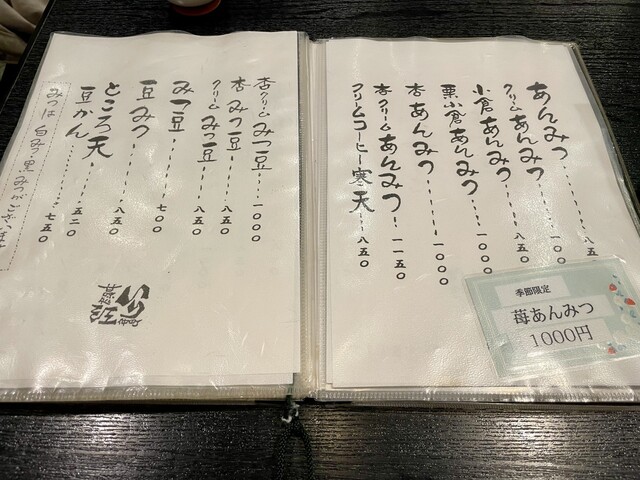 あんみつ 八五
クリームあんみつ 一〇
小倉あんみつ 八五〇
栗小倉あんみつ 一〇〇〇
杏あんみつ 一〇〇〇
杏クリームあんみつ 一一五〇
クリームコーヒー寒天 八五〇
季節限定
苺あんみつ
1000円
杏クリームみつ豆 一〇〇〇
杏みつ豆 八五〇
クリームみつ豆 八五〇
みつ豆 七〇〇
豆みつ 八五〇
ところ天 五二〇
豆かん 七五〇
みつは、白みつ・黒みつがございます